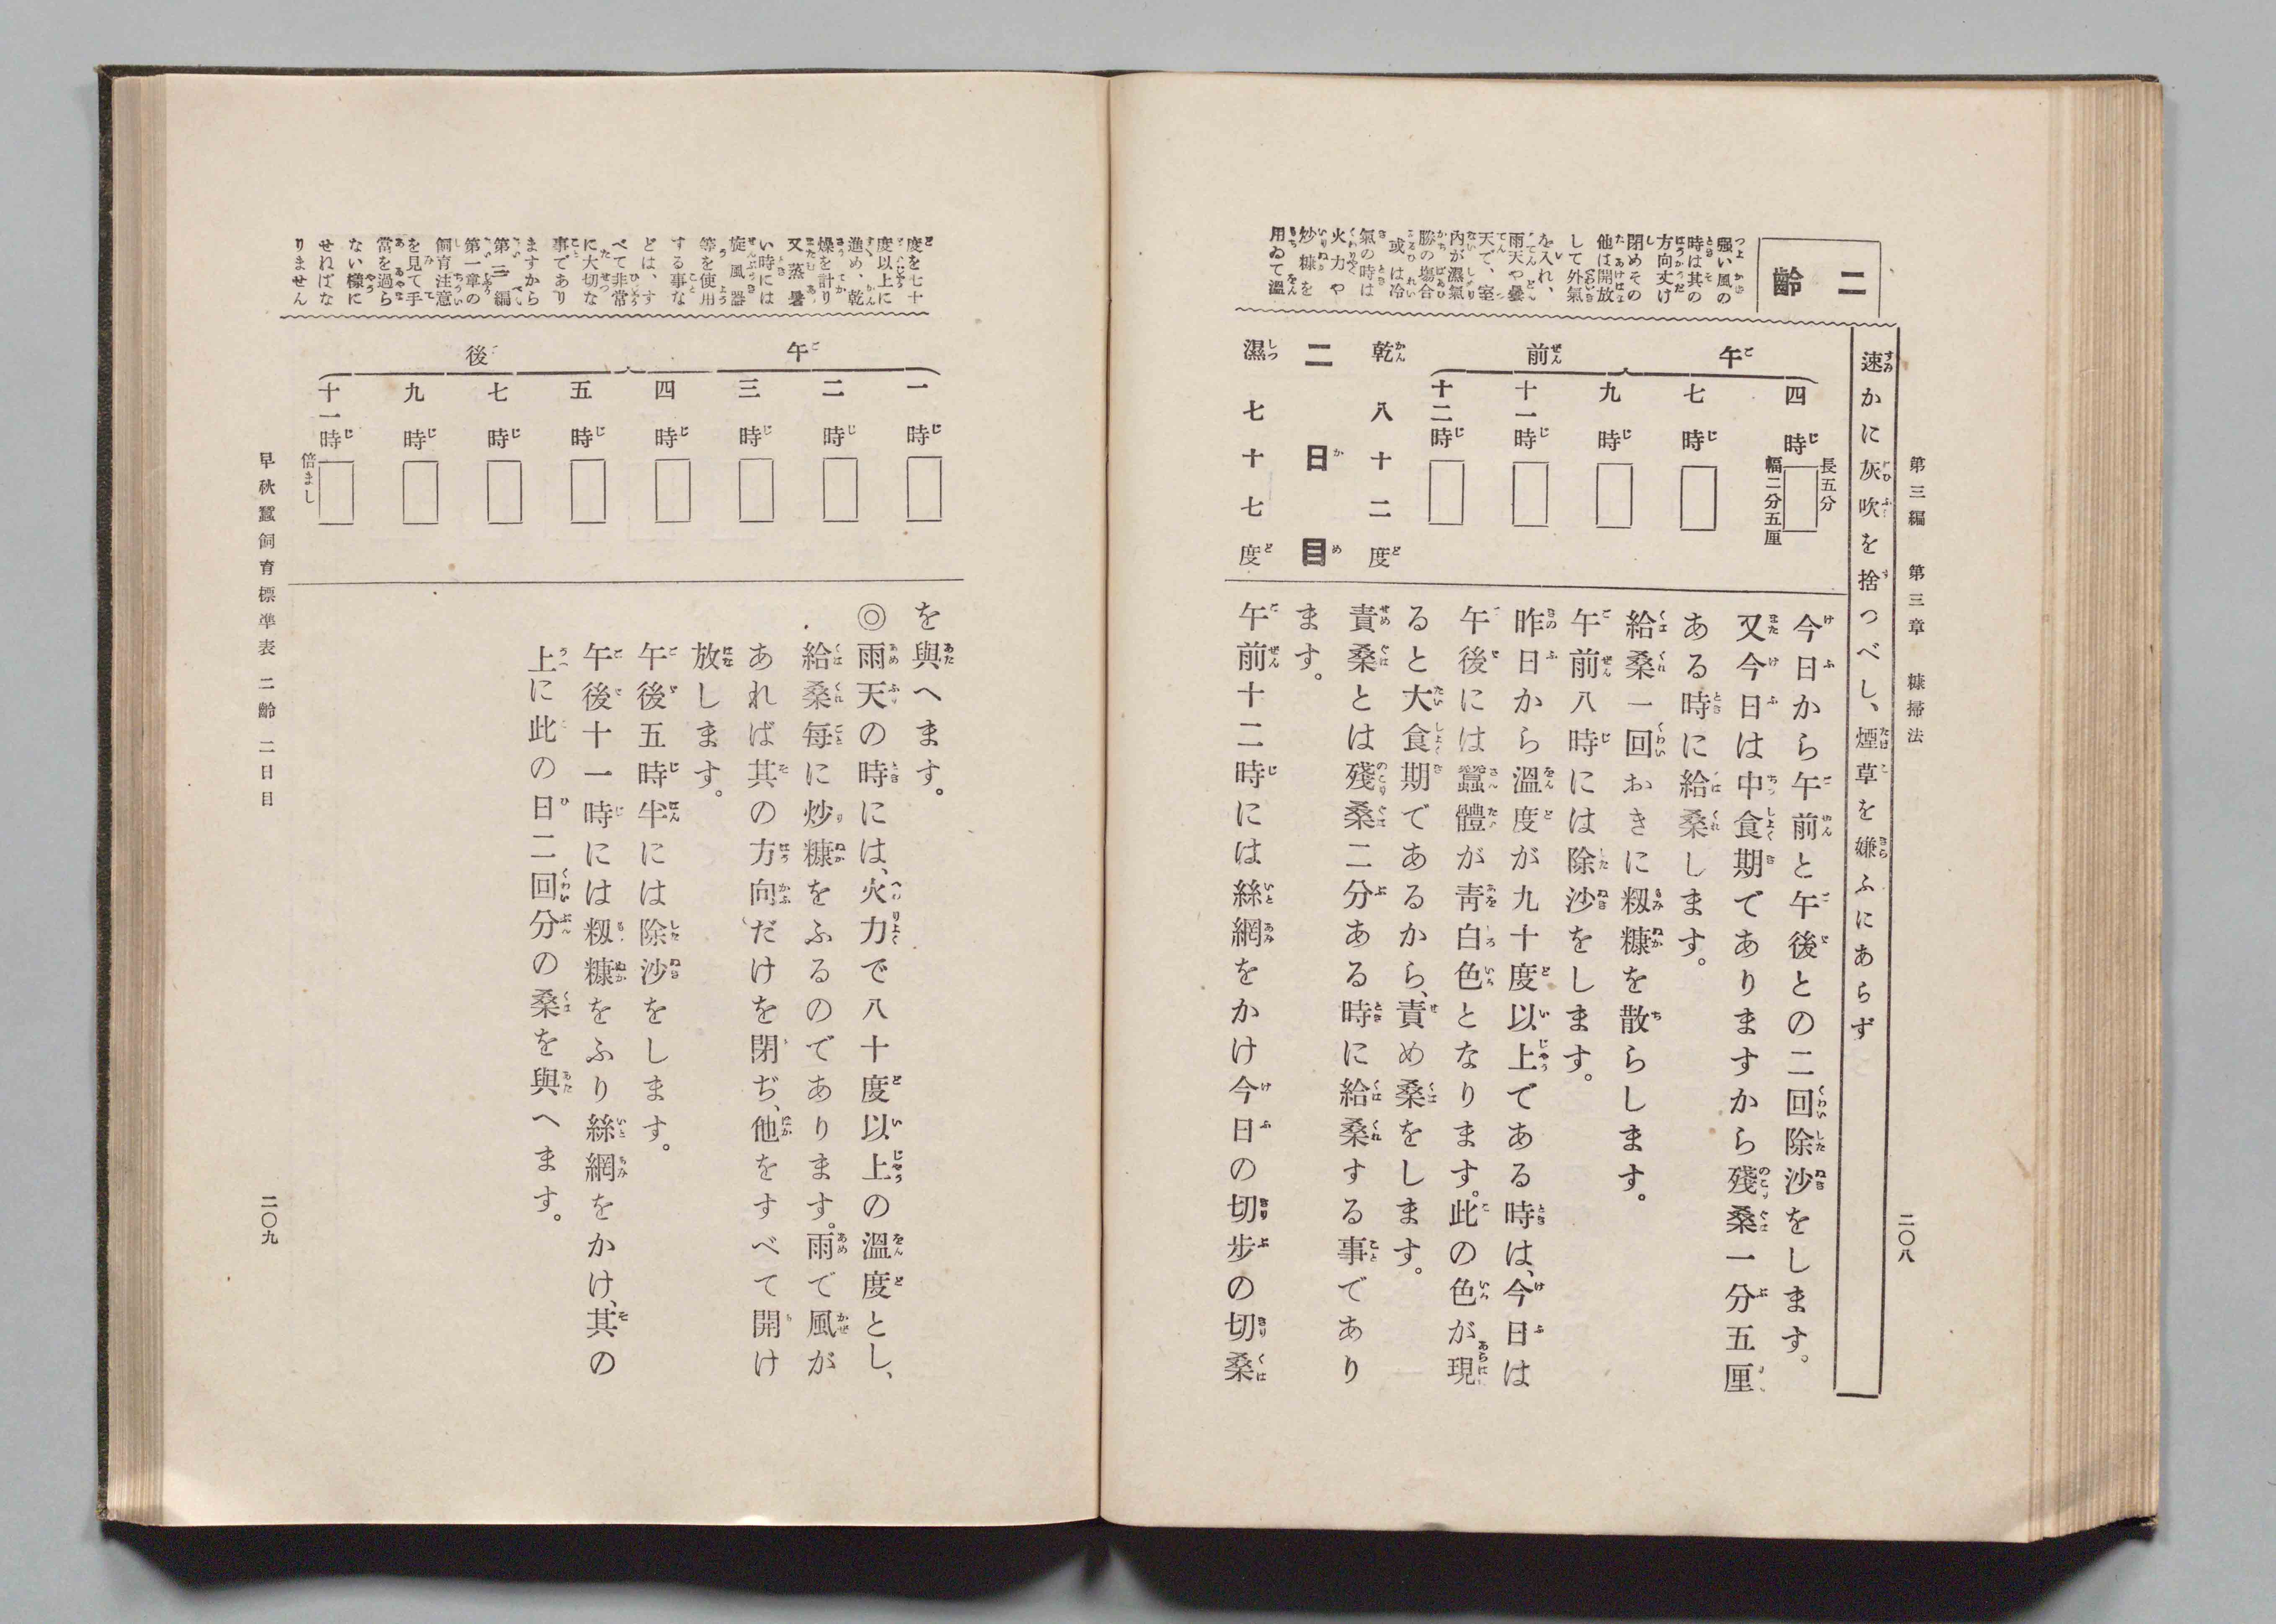 第三編　第三章　糠掃法
二〇八
速かに灰吹を捨つべし、煙草を嫌ふにあらず
二齢
强い風の
時は其の
方向丈け
閉めその
他は開放
して外氣
を入れ、
雨天や曇
天で、室
內が濕氣
勝の塲合
或は冷
氣の時は
火力や
炒糠を
用ゐて溫
午前
四時
長五分
幅二分五厘
七時
九時
十一時
十二時
乾八十二度
二日目
濕七十七度
今日から午前と午後との二回除沙をします。
又今日は中食期でありますから殘桑一分五厘
ある時に給桑します。
給桑一回おきに籾糠を散らします。
午前八時には除沙をします。
昨日から溫度が九十度以上である時は、今日は
午後には蠶體が靑白色となります。此の色が現
ると大食期であるから、責め桑をします。
責桑とは殘桑二分ある時に給桑する事であり
ます。
午前十二時には絲網をかけ今日の切步の切桑
度を七十
度以上に
進め、乾
燥を計り
又蒸暑
い時には
旋風器
等を使用
する事な
どは、す
べて非常
に大切な
事であり
ますから
第三編
第一章の
飼育注意
を見て手
當を過ら
ない樣に
せねばな
りません
午後
一時
二時
三時
四時
五時
七時
九時
十一時
倍まし
を與へます。
◎雨天の時には、火力で八十度以上の溫度とし、
給桑每に炒糠をふるのであります。雨で風が
あれば其の方向だけを閉ぢ、他をすべて開け
放します。
午後五時半には除沙をします。
午後十一時には籾糠をふり絲網をかけ、其の
上に此の日二回分の桑を與へます。
早秋蠶飼育標準表　二齢　二日目
二〇九